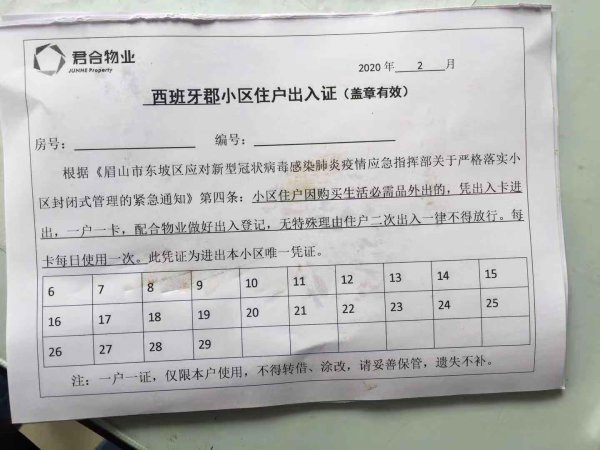 君合物业
JUNHE Property
2020 年 2 月
西班牙郡小区住户出入证（盖章有效）
房号： 编号：
根据《眉山市东坡区应对新型冠状病毒感染肺炎疫情应急指挥部关于严格落实小
区封闭式管理的紧急通知》第四条：小区住户因购买生活必需品外出的，凭出入卡进
出，一户一卡，配合物业做好出入登记，无特殊理由住户二次出入一律不得放行。每
卡每日使用一次。此凭证为进出本小区唯一凭证。
6 7 8 9 10 11 12 13 14 15
16 17 18 19 20 21 22 23 24 25
26 27 28 29
注：一户一证，仅限本户使用，不得转借、涂改，请妥善保管，遗失不补。